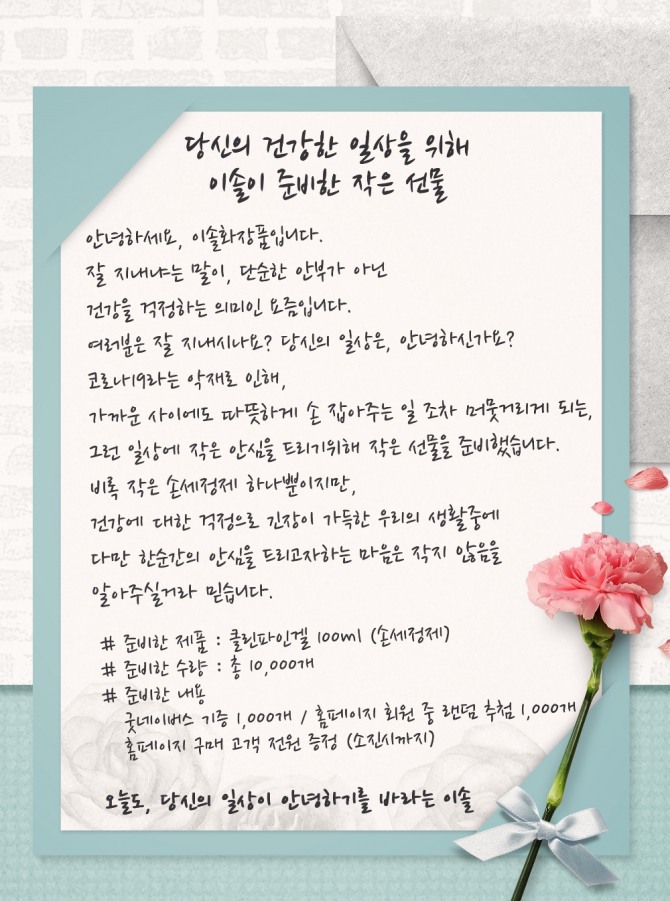 당신의 건강한 일상을 위해
이솔이 준비한 작은 선물
안녕하세요, 이솔화장품입니다.
잘 지내냐는 말이, 단순한 안부가 아닌
건강을 걱정하는 의미인 요즘입니다.
여러분은 잘 지내시나요? 당신의 일상은, 안녕하신가요?
코로나19라는 악재로 인해,
가까운 사이에도 따뜻하게 손 잡아주는 일 조차 머뭇거리게 되는,
그런 일상에 작은 안심을 드리기위해 작은 선물을 준비했습니다.
비록 작은 손세정제 하나뿐이지만,
건강에 대한 걱정으로 긴장이 가득한 우리의 생활중에
다만 한순간의 안심을 드리고자하는 마음은 작지 않음을
알아주실거라 믿습니다.
# 준비한 제품 : 클린파인겔 100ml (손세정제)
# 준비한 수량 : 총 10,000개
# 준비한 내용
굿네이버스 기증 1,000개 / 홈페이지 회원 중 랜덤 추첨 1,000개
홈페이지 구매 고객 전원 증정 (소진시까지)
오늘도, 당신의 일상이 안녕하기를 바라는 이솔